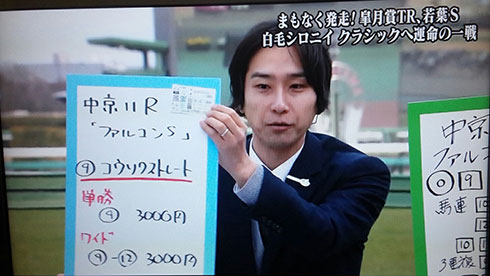 まもなく発走!皐月賞TR、若葉S
白毛シロニイ クラシックへ運命の一戦
中京11R
「ファルコンS」
⑨コウソクストレート
単勝
⑨ 3000円
ワイド
⑨-⑫ 3000円
中京
ファルコ
◎9
馬連
3連複